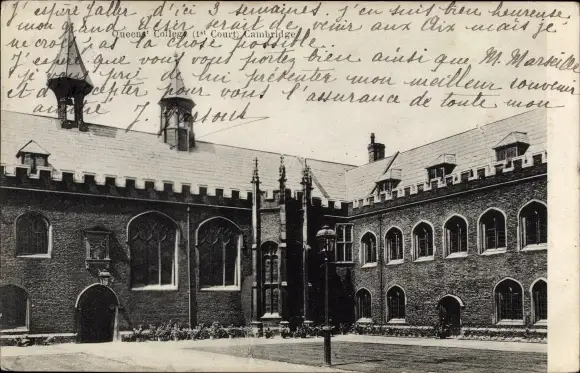 J'espère aller d'ici 3 semaines. J'en suis bien heureuse,
mon grand désir serait de venir aux Aix mais je
Queens' College (1st Court) Cambridge
ne crois pas la chose possible.
J'espère que vous vous portez bien ainsi que M. Marseille
je vous prie de lui présenter mon meilleur souvenir
et d'accepter pour vous l'assurance de toute mon
amitié J. Parsons